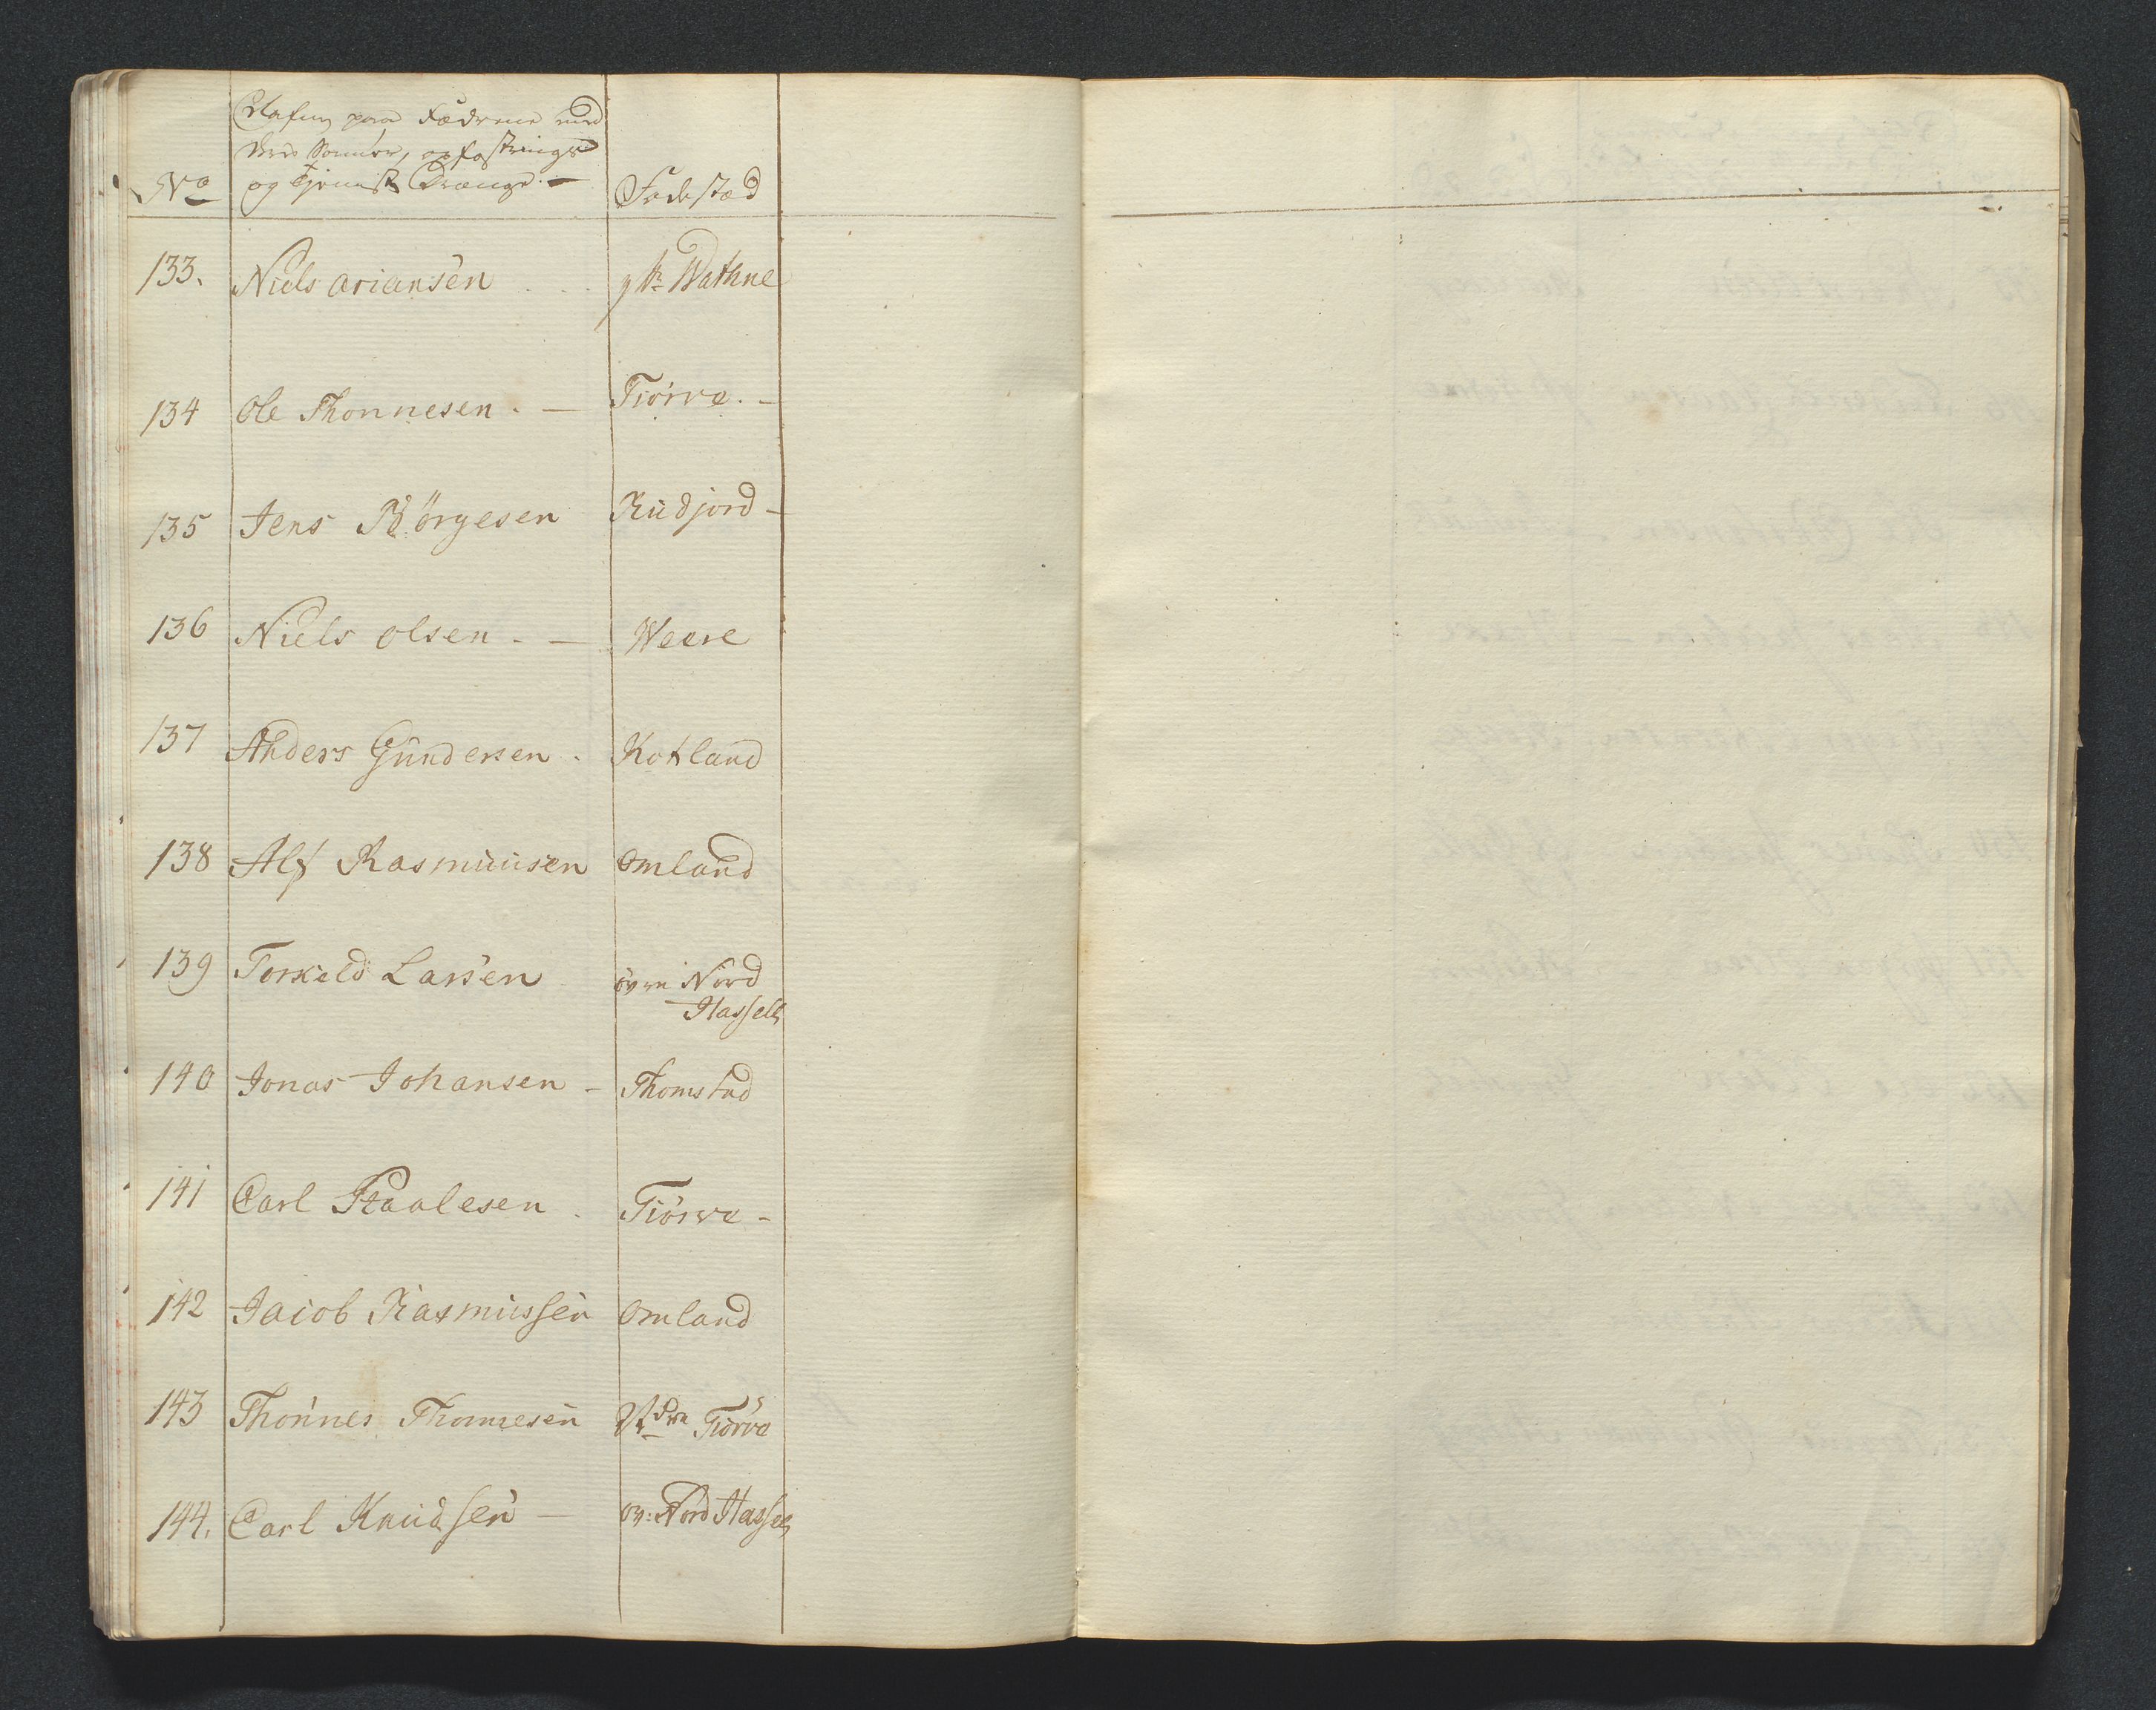 No Nafn paa Fædrene med
deris Sønner, opfostrings
og tjenist Drænge.— Fødestæd
133. Niels ariansen . . . ytr Wathne
134 Ole Thonnesen . — Tiörve . -
135 Jens Börgesen Rudjord -
136 Niels olsen . — Weere
137 Anders Gundersen . Kotland
138 Alf Rasmuusen Omland
139 Torkeld Larsen övre Nord
Hassell
140 Jonas Johansen - Thomstad
141 Carl Staalesen . Tiörve -
142 Jacob Rasmussen Omland
143 Thonnes Thomesen Tiörve
144. Carl Knudsen — öv: Nord Hassel